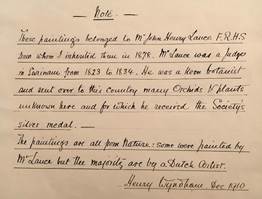 — Note. —
These paintings belonged to Mr John Henry Lance F.R.H.S
from whom I inherited them in 1878. Mr Lance was a Judge
in Surinam from 1823 to 1834. He was a keen botanist
and sent over to this country many Orchids & plants
unknown here and for which he received the Society's
silver medal. —
The paintings are all from Nature: some were painted by
Mr Lance but the majority are by a Dutch Artist.
Henry Wyndham Dec 1910